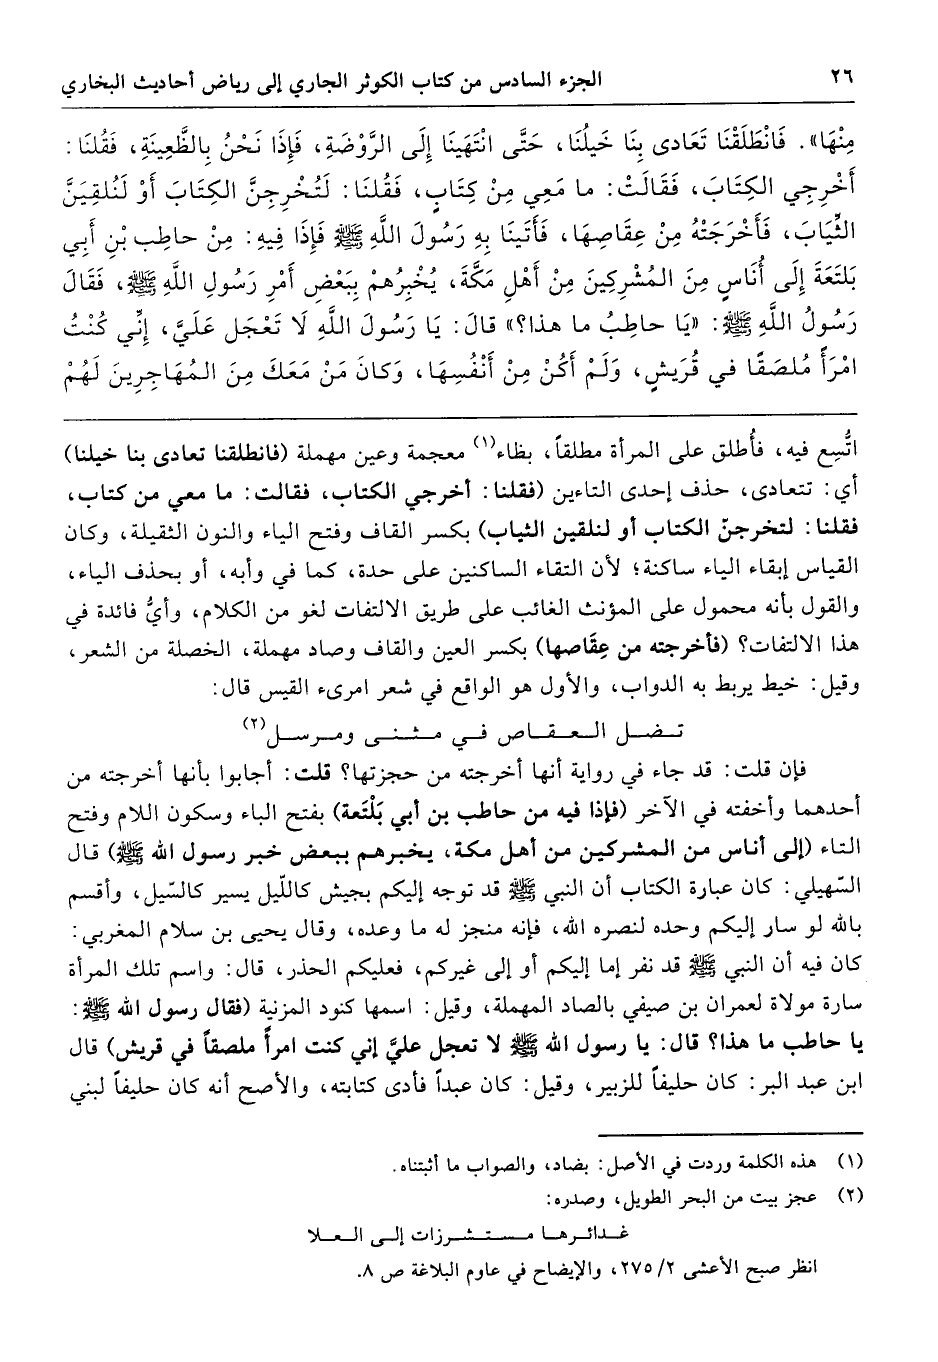 ٢٦ الجزء السادس من كتاب الكوثر الجاري إلى رياض أحاديث البخاري
مِنْهَا». فَانْطَلَقْنَا تَعَادى بِنَا خَيلُنَا، حَتَّى انْتَهَينَا إِلَى الرَّوْضَةِ، فَإِذَا نَحْنُ بِالظَّعِينَةِ، فَقُلنَا:
أَخْرِجِي الكِتَابَ، فَقَالَتْ: ما مَعِي مِنْ كِتَابٍ، فَقُلنَا: لَتُخْرِجِنَّ الكِتَابَ أَوْ لَنُلقِيَنَّ
الثِّيَابَ، فَأَخْرَجَتْهُ مِنْ عِقَاصِهَا، فَأَتَينَا بِهِ رَسُولَ اللَّهِ ﷺ فَإِذَا فِيهِ: مِنْ حاطِبِ بْنِ أَبِي
بَلتَعَةَ إِلَى أُنَاسٍ مِنَ المُشْرِكِينَ مِنْ أَهْلِ مَكَّةَ، يُخْبِرُهُمْ بِبَعْضِ أَمْرِ رَسُولِ اللَّهِ ﷺ، فَقَالَ
رَسُولُ اللَّهِ ﷺ: «يَا حاطِبُ ما هذا؟» قالَ: يَا رَسُولَ اللهِ لَا تَعْجَل عَلَيَّ، إِنِّي كُنْتُ
امْرَأً مُلصَقًا في قُرَيشٍ، وَلَمْ أَكُنْ مِنْ أَنْفُسِهَا، وَكانَ مَنْ مَعَكَ مِنَ المُهَاجِرِينَ لَهُمْ
اتُّسِع فيه، فأُطلق على المرأة مطلقاً، بظاء(١) معجمة وعين مهملة (فانطلقنا تعادى بنا خيلنا)
أي: تتعادى، حذف إحدى التاءين (فقلنا: أخرجي الكتاب، فقالت: ما معي من كتاب،
فقلنا: لتخرجنّ الكتاب أو لنلقين الثياب) بكسر القاف وفتح الياء والنون الثقيلة، وكان
القياس إبقاء الياء ساكنة؛ لأن التقاء الساكنين على حدة، كما في وأبه، أو بحذف الياء،
والقول بأنه محمول على المؤنث الغائب على طريق الالتفات لغو من الكلام، وأيُّ فائدة في
هذا الالتفات؟ (فأخرجته من عِقَاصها) بكسر العين والقاف وصاد مهملة، الخصلة من الشعر،
وقيل: خيط يربط به الدواب، والأول هو الواقع في شعر امرىء القيس قال:
تـضـل الـعـقـاص فـي مـثـنـى ومـرسـل(٢)
فإن قلت: قد جاء في رواية أنها أخرجته من حجزتها؟ قلت: أجابوا بأنها أخرجته من
أحدهما وأخفته في الآخر (فإذا فيه من حاطب بن أبي بَلْتَعة) بفتح الباء وسكون اللام وفتح
التاء (إلى أناس من المشركين من أهل مكة، يخبرهم ببعض خبر رسول الله ﷺ) قال
السّهيلي: كان عبارة الكتاب أن النبي ﷺ قد توجه إليكم بجيش كاللّيل يسير كالسّيل، وأقسم
بالله لو سار إليكم وحده لنصره الله، فإنه منجز له ما وعده، وقال يحيى بن سلام المغربي:
كان فيه أن النبي ﷺ قد نفر إما إليكم أو إلى غيركم، فعليكم الحذر، قال: واسم تلك المرأة
سارة مولاة لعمران بن صيفي بالصاد المهملة، وقيل: اسمها كنود المزنية (فقال رسول الله ﷺ:
يا حاطب ما هذا؟ قال: يا رسول الله ﷺ لا تعجل عليَّ إني كنت امرأً ملصقاً في قريش) قال
ابن عبد البر: كان حليفاً للزبير، وقيل: كان عبداً فأدى كتابته، والأصح أنه كان حليفاً لبني
(١) هذه الكلمة وردت في الأصل: بضاد، والصواب ما أثبتناه.
(٢) عجز بيت من البحر الطويل، وصدره:
غـدائـرهـا مـسـتـشـزرات إلـى الـعـلا
انظر صبح الأعشى ٢/ ٢٧٥، والإيضاح في عاوم البلاغة ص ٨.